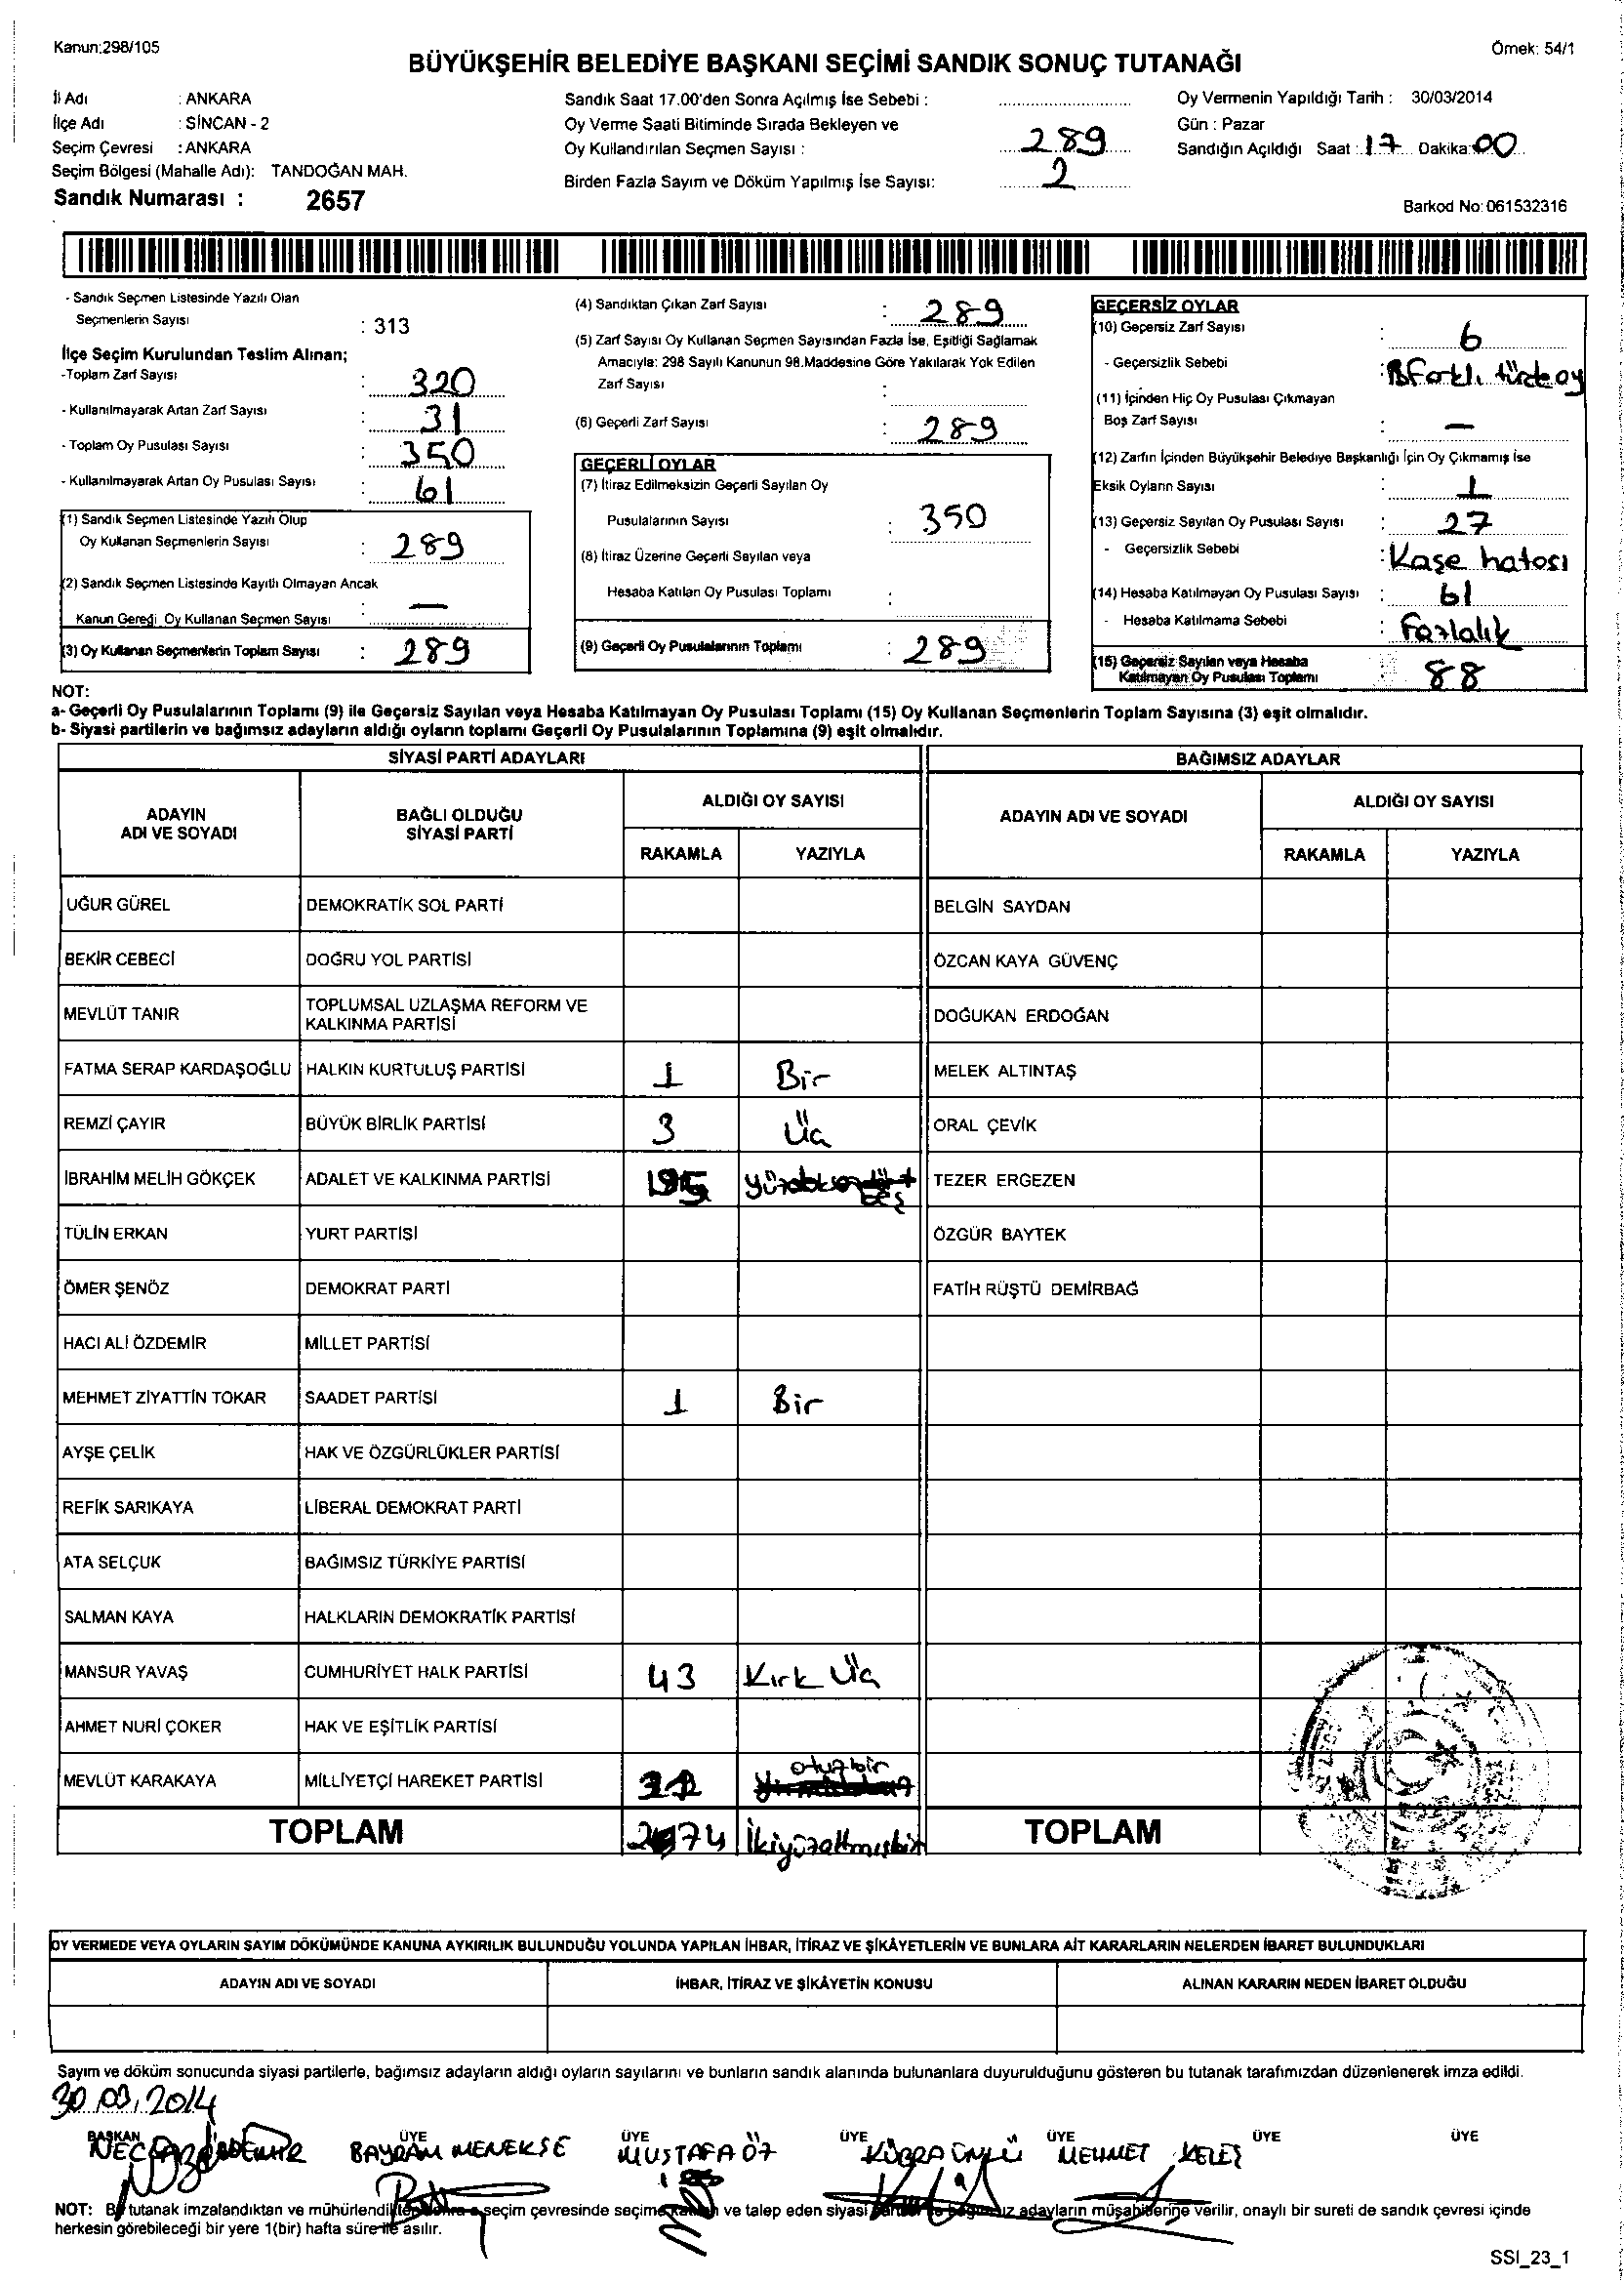 Kanun:298/105
Örnek: 54/1
BÜYÜKŞEHİR BELEDİYE BAŞKANI SEÇİMİ SANDIK SONUÇ TUTANAĞI
İl Adı : ANKARA
İlçe Adı : SİNCAN - 2
Seçim Çevresi : ANKARA
Seçim Bölgesi (Mahalle Adı): TANDOĞAN MAH.
Sandık Numarası : 2657
Sandık Saat 17.00'den Sonra Açılmış İse Sebebi :
Oy Verme Saati Bitiminde Sırada Bekleyen ve
Oy Kullandırılan Seçmen Sayısı : 289
Birden Fazla Sayım ve Döküm Yapılmış İse Sayısı: 2
Oy Vermenin Yapıldığı Tarih : 30/03/2014
Gün : Pazar
Sandığın Açıldığı Saat : 17 Dakika: 00
Barkod No: 061532316
- Sandık Seçmen Listesinde Yazılı Olan
Seçmenlerin Sayısı : 313
İlçe Seçim Kurulundan Teslim Alınan;
-Toplam Zarf Sayısı : 320
- Kullanılmayarak Artan Zarf Sayısı : 31
- Toplam Oy Pusulası Sayısı : 350
- Kullanılmayarak Artan Oy Pusulası Sayısı : 61
(1) Sandık Seçmen Listesinde Yazılı Olup
Oy Kullanan Seçmenlerin Sayısı : 289
(2) Sandık Seçmen Listesinde Kayıtlı Olmayan Ancak
Kanun Gereği Oy Kullanan Seçmen Sayısı : —
(3) Oy Kullanan Seçmenlerin Toplam Sayısı : 289
(4) Sandıktan Çıkan Zarf Sayısı : 289
(5) Zarf Sayısı Oy Kullanan Seçmen Sayısından Fazla İse, Eşitliği Sağlamak
Amacıyla: 298 Sayılı Kanunun 98.Maddesine Göre Yakılarak Yok Edilen
Zarf Sayısı :
(6) Geçerli Zarf Sayısı : 289
GEÇERLİ OYLAR
(7) İtiraz Edilmeksizin Geçerli Sayılan Oy
Pusulalarının Sayısı : 350
(8) İtiraz Üzerine Geçerli Sayılan veya
Hesaba Katılan Oy Pusulası Toplamı :
(9) Geçerli Oy Pusulalarının Toplamı : 289
GEÇERSİZ OYLAR
(10) Geçersiz Zarf Sayısı : 6
- Geçersizlik Sebebi : Farklı türde oy
(11) İçinden Hiç Oy Pusulası Çıkmayan
Boş Zarf Sayısı : —
(12) Zarfın İçinden Büyükşehir Belediye Başkanlığı İçin Oy Çıkmamış İse
Eksik Oyların Sayısı : 1
(13) Geçersiz Sayılan Oy Pusulası Sayısı : 27
- Geçersizlik Sebebi : Kaşe hatası
(14) Hesaba Katılmayan Oy Pusulası Sayısı : 61
- Hesaba Katılmama Sebebi : Fazlalık
(15) Geçersiz Sayılan veya Hesaba
Katılmayan Oy Pusulası Toplamı : 88
NOT:
a- Geçerli Oy Pusulalarının Toplamı (9) ile Geçersiz Sayılan veya Hesaba Katılmayan Oy Pusulası Toplamı (15) Oy Kullanan Seçmenlerin Toplam Sayısına (3) eşit olmalıdır.
b- Siyasi partilerin ve bağımsız adayların aldığı oyların toplamı Geçerli Oy Pusulalarının Toplamına (9) eşit olmalıdır.
SİYASİ PARTİ ADAYLARI
BAĞIMSIZ ADAYLAR
ADAYIN
ADI VE SOYADI
BAĞLI OLDUĞU
SİYASİ PARTİ
ALDIĞI OY SAYISI
RAKAMLA YAZIYLA
ADAYIN ADI VE SOYADI
ALDIĞI OY SAYISI
RAKAMLA YAZIYLA
UĞUR GÜREL DEMOKRATİK SOL PARTİ BELGİN SAYDAN
BEKİR CEBECİ DOĞRU YOL PARTİSİ ÖZCAN KAYA GÜVENÇ
MEVLÜT TANIR TOPLUMSAL UZLAŞMA REFORM VE
KALKINMA PARTİSİ DOĞUKAN ERDOĞAN
FATMA SERAP KARDAŞOĞLU HALKIN KURTULUŞ PARTİSİ 1 Bir MELEK ALTINTAŞ
REMZİ ÇAYIR BÜYÜK BİRLİK PARTİSİ 3 Üç ORAL ÇEVİK
İBRAHİM MELİH GÖKÇEK ADALET VE KALKINMA PARTİSİ 195 beş TEZER ERGEZEN
TÜLİN ERKAN YURT PARTİSİ ÖZGÜR BAYTEK
ÖMER ŞENÖZ DEMOKRAT PARTİ FATİH RÜŞTÜ DEMİRBAĞ
HACI ALİ ÖZDEMİR MİLLET PARTİSİ
MEHMET ZİYATTİN TOKAR SAADET PARTİSİ 1 Bir
AYŞE ÇELİK HAK VE ÖZGÜRLÜKLER PARTİSİ
REFİK SARIKAYA LİBERAL DEMOKRAT PARTİ
ATA SELÇUK BAĞIMSIZ TÜRKİYE PARTİSİ
SALMAN KAYA HALKLARIN DEMOKRATİK PARTİSİ
MANSUR YAVAŞ CUMHURİYET HALK PARTİSİ 43 Kırk Üç
AHMET NURİ ÇOKER HAK VE EŞİTLİK PARTİSİ
MEVLÜT KARAKAYA MİLLİYETÇİ HAREKET PARTİSİ otuzbir
TOPLAM İkiyüzaltmışbir TOPLAM
OY VERMEDE VEYA OYLARIN SAYIM DÖKÜMÜNDE KANUNA AYKIRILIK BULUNDUĞU YOLUNDA YAPILAN İHBAR, İTİRAZ VE ŞİKÂYETLERİN VE BUNLARA AİT KARARLARIN NELERDEN İBARET BULUNDUKLARI
ADAYIN ADI VE SOYADI İHBAR, İTİRAZ VE ŞİKÂYETİN KONUSU ALINAN KARARIN NEDEN İBARET OLDUĞU
Sayım ve döküm sonucunda siyasi partilerle, bağımsız adayların aldığı oyların sayılarını ve bunların sandık alanında bulunanlara duyurulduğunu gösteren bu tutanak tarafımızdan düzenlenerek imza edildi.
30.03.2014
BAŞKAN ÜYE ÜYE ÜYE ÜYE ÜYE ÜYE
BAYRAM MENEKŞE MUSTAFA ÖZ KÜBRA ÜNLÜ MEHMET KELEŞ
NOT: Bu tutanak imzalandıktan ve mühürlendikten sonra seçim çevresinde seçime katılan ve talep eden siyasi partiler ile bağımsız adayların müşahitlerine verilir, onaylı bir sureti de sandık çevresi içinde
herkesin görebileceği bir yere 1(bir) hafta süre ile asılır.
SSI_23_1